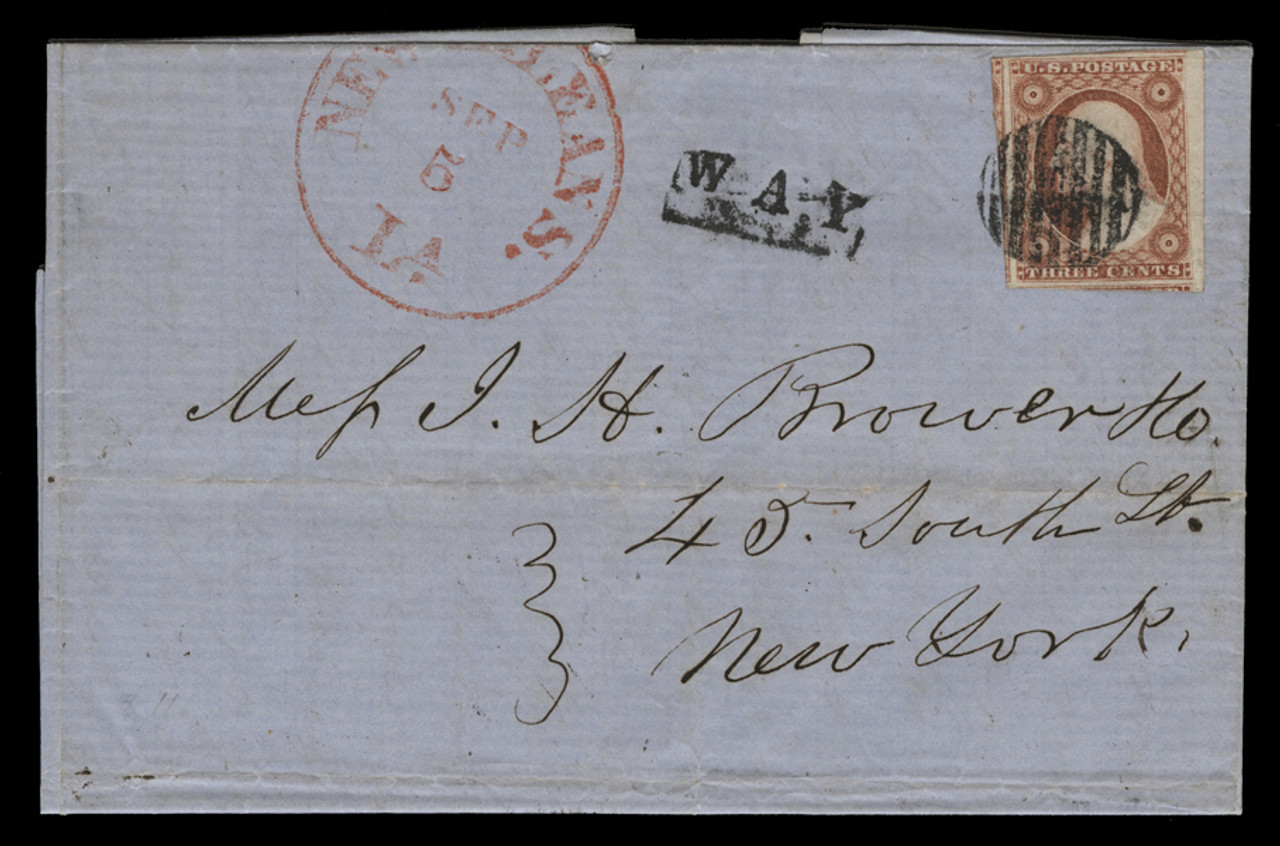 NEW ORLEANS.
SEP
5
LA
WAY
U.S. POSTAGE
THREE CENTS
Mess J. H. Brower & Co.
45. South St.
New York.